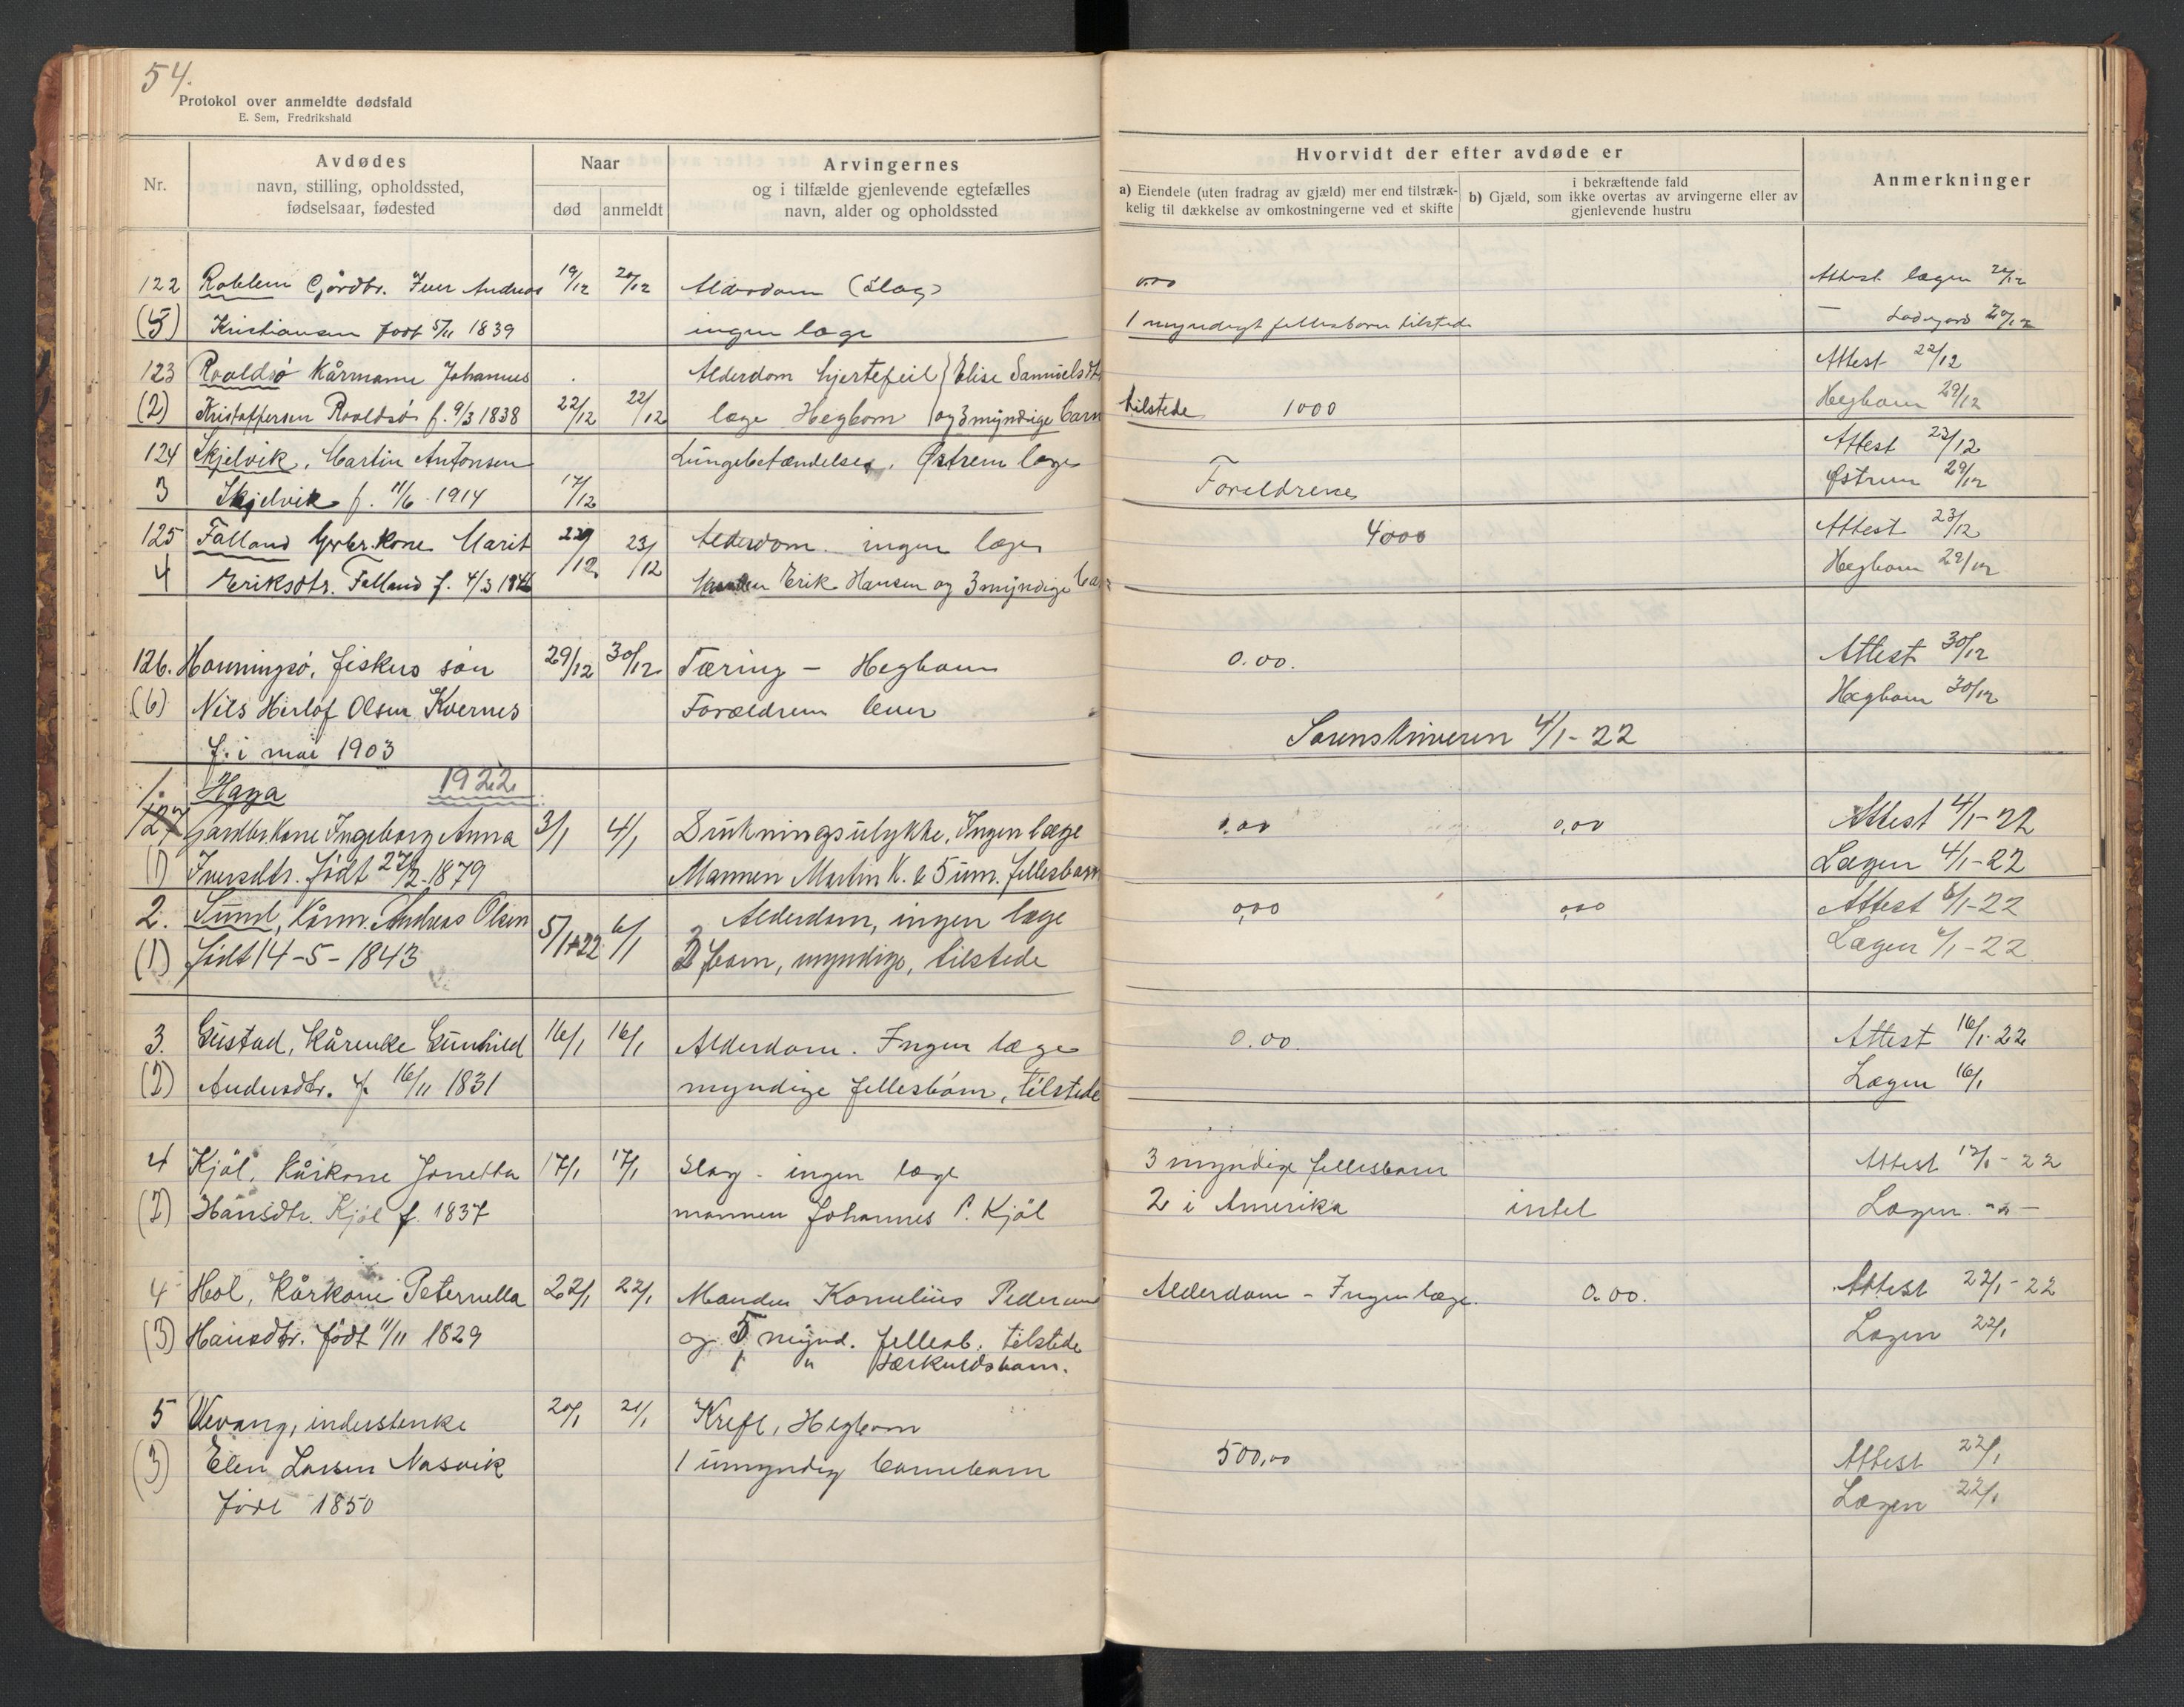 54.
Protokol over anmeldte dødsfald
E. Sem, Fredrikshald
Nr.
Avdødes
navn, stilling, opholdssted,
fødselsaar, fødested
Naar
død
anmeldt
Arvingernes
og i tilfælde gjenlevende egtefælles
navn, alder og opholdssted
Hvorvidt der efter avdøde er
a) Eiendele (uten fradrag av gjæld) mer end tilstræk-
kelig til dækkelse av omkostningerne ved et skifte
i bekræftende fald
b) Gjæld, som ikke overtas av arvingerne eller av
gjenlevende hustru
Anmerkninger
122 Gårdbr. Iver Andreas 19/12 20/12 Alderdom (Slag) 0.00 Attest lægen 20/12
(5) Kristiansen født 5/11 1839 ingen læge 1 myndigt fellesbarn tilstede
123 Roaldsø Kårmann Johannes Alderdom hjertefeil Elise Samuelsdtr Attest 22/12
(2) Kristoffersen Roaldsø f. 9/3 1838 22/12 22/12 læge Hegbom og 3 myndige barn tilstede 1000 Hegbom 29/12
124 Skjelvik, Martin Antonsen Lungebetændelse, Østrem læge Attest 23/12
3 Skjelvik f. 11/6 1914 17/12 Foreldrene Østrem 29/12
125 Falland Grbr.kone Marit 22/12 23/12 Alderdom. ingen læge 4000 Attest 23/12
4 Eriksdtr. Falland f. 4/3 Erik Hansen og 3 myndige Hegbom 29/12
126. Honningsø, fiskers søn 29/12 30/12 Tæring - Hegbom 0.00. Attest 30/12
(6) Nils Herlof Olsen Kvernes Forældrene lever Hegbom 30/12
f. i mai 1903 Sorenskriveren 4/1-22
1. Haga 1922
127 Gardbr.kone Ingeborg Anna 3/1 4/1 Drukningsulykke, Ingen læge 0,00 0,00 Attest 4/1-22
(1) Iversdtr. født 27/2-1879 Mannen Martin K. & 5 um. fellesbarn Lægen 4/1-22
2. Sund, Kårm. Andreas Olsen 5/1-22 6/1 Alderdom, ingen læge 0,00 0,00 Attest 6/1-22
(1) født 14-5-1843 3 barn, myndige, tilstede Lægen 6/1-22
3. Gustad, Kårenke Gunhild 16/1 16/1 Alderdom. Ingen læge 0.00. Attest 16/1-22
(2) Andersdtr. f. 16/11 1831 myndige fellesbarn, tilstede Lægen 16/1
4 Kjøl, Kårkone Jonetta 17/1 17/1 Slag - ingen læge 3 myndige fellesbarn Attest 17/1-22
(2) Hansdtr. Kjøl f. 1837 mannen Johannes P. Kjøl 2 i Amerika intet Lægen -"-
4 Hol, Kårkone Peternella 22/1 22/1 Manden Kornelius Pedersen Alderdom - Ingen læge. 0.00. Attest 22/1-22
(3) Hansdtr. født 11/11 1829 og 5 mynd. fellesb. tilstede Lægen 22/1
1 " særkuldsbarn.
5 Vevang, inderstenke 20/1 21/1 Kreft, Hegbom
(3) Elen Larsen Nasvik 1 umyndig barnebarn 500,00 Attest 22/1
født 1850 Lægen 22/1